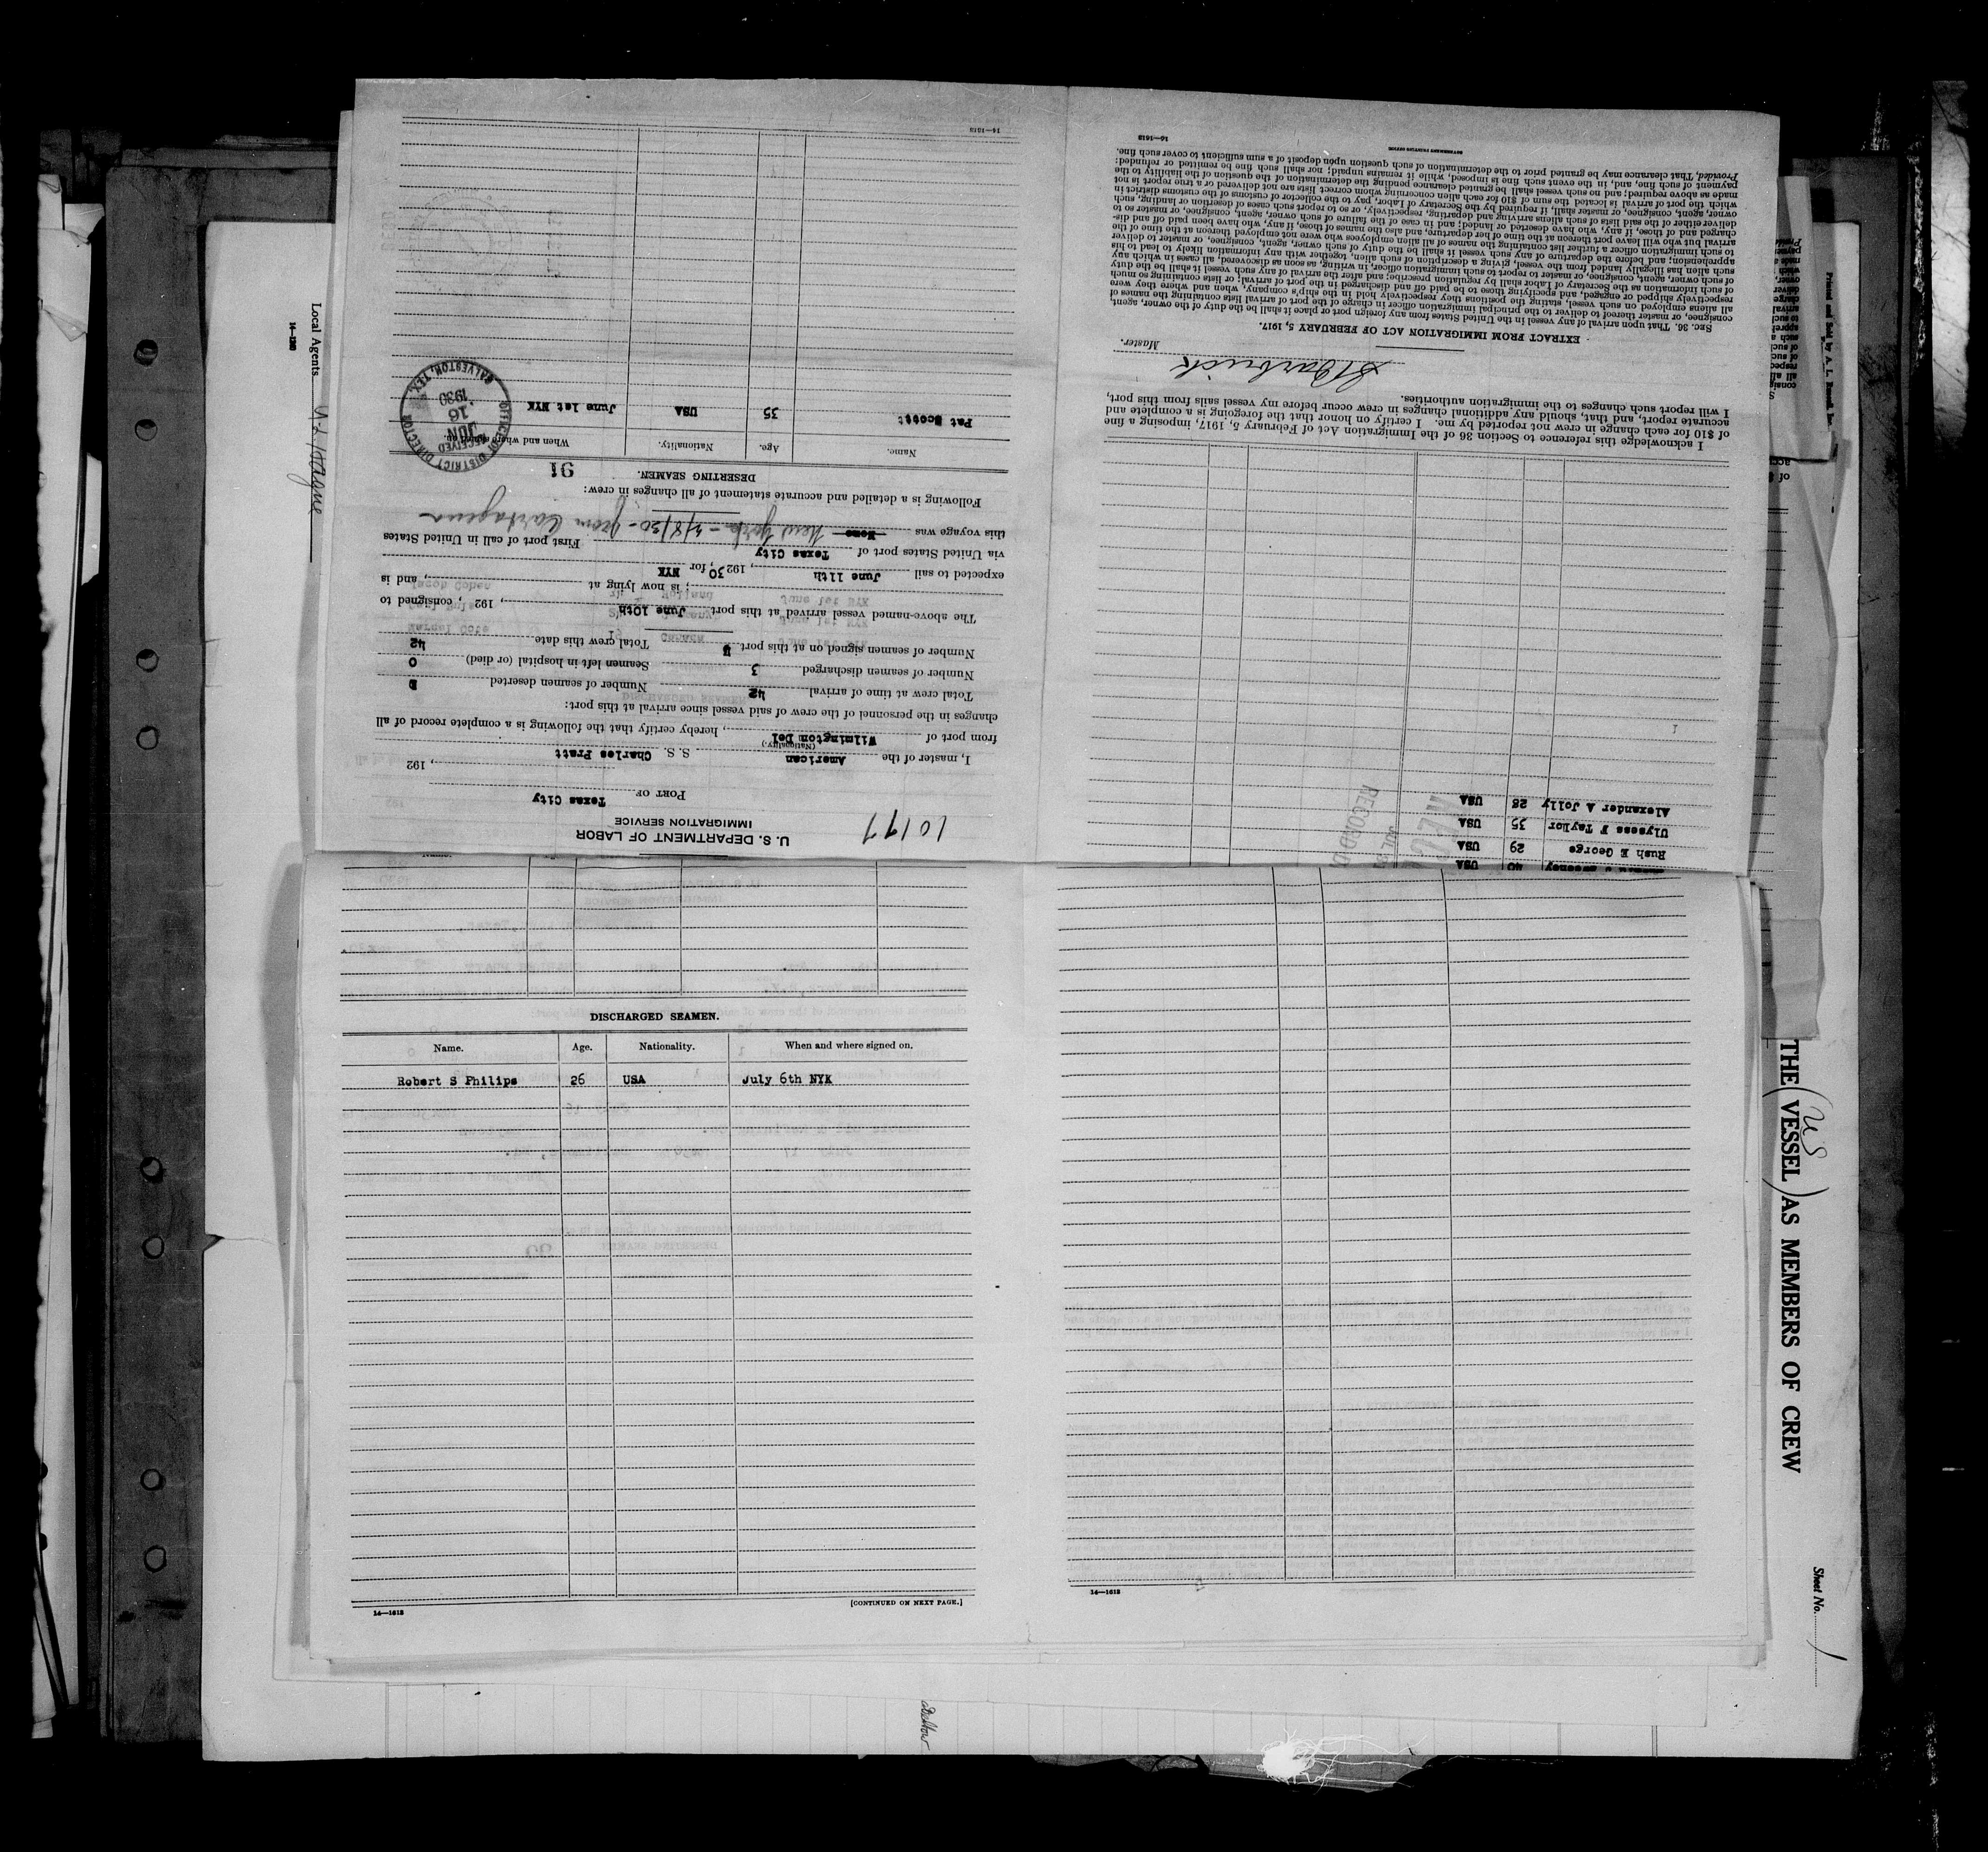 10177
U. S. DEPARTMENT OF LABOR
IMMIGRATION SERVICE
PORT OF Texas City
, 192
I, master of the American S. S. Charles Pratt
(Nationality.)
from port of Wilmington Del , hereby certify that the following is a complete record of all
changes in the personnel of the crew of said vessel since arrival at this port:
Total crew at time of arrival 42 Number of seamen deserted
Number of seamen discharged 3 Seamen left in hospital (or died) 0
Number of seamen signed on at this port Total crew this date 42
The above-named vessel arrived at this port June 10th , 192 , consigned to
; is now lying at , and is
expected to sail June 11th , 1920 30, for NYK
via United States port of Texas City First port of call in United States
this voyage was None New York - 3/8/30 - from Cartagena
Following is a detailed and accurate statement of all changes in crew:
DESERTING SEAMEN. 91
Name. Age. Nationality. When and where signed on.
Pat Scott 35 USA June 1st NYK
OFFICE OF DISTRICT DIRECTOR
RECEIVED
JUN
16
1930
GALVESTON, TEX.
14—1613
Rush E George 29 USA
Ulysess F Taylor 35 USA
Alexander A Jolly 28 USA
I acknowledge this reference to Section 36 of the Immigration Act of February 5, 1917, imposing a fine
of $10 for each change in crew not reported by me. I certify on honor that the foregoing is a complete and
accurate report, and that, should any additional changes in crew occur before my vessel sails from this port,
I will report such changes to the immigration authorities.
Master.
EXTRACT FROM IMMIGRATION ACT OF FEBRUARY 5, 1917.
SEC. 36. That upon arrival of any vessel in the United States from any foreign port or place it shall be the duty of the owner, agent,
consignee, or master thereof to deliver to the principal immigration officer in charge of the port of arrival lists containing the names of
all aliens employed on such vessel, stating the positions they respectively hold in the ship's company, when and where they were
respectively shipped or engaged, and specifying those to be paid off and discharged in the port of arrival; or lists containing so much
of such information as the Secretary of Labor shall by regulation prescribe; and after the arrival of any such vessel it shall be the duty
of such owner, agent, consignee, or master to report to such immigration officer, in writing, as soon as discovered, all cases in which any
such alien has illegally landed from the vessel, giving a description of such alien, together with any information likely to lead to his
apprehension; and before the departure of any such vessel it shall be the duty of such owner, agent, consignee, or master to deliver
to such immigration officer a further list containing the names of all alien employees who were not employed thereon at the time of the
arrival but who will leave port thereon at the time of her departure, and also the names of those, if any, who have been paid off and dis-
charged and of those, if any, who have deserted or landed; and in case of the failure of such owner, agent, consignee, or master so to
deliver either of the said lists of such aliens arriving and departing, respectively, or so to report such cases of desertion or landing, such
owner, agent, consignee, or master shall, if required by the Secretary of Labor, pay to the collector of customs of the customs district in
which the port of arrival is located the sum of $10 for each alien concerning whom correct lists are not delivered or a true report is not
made as above required; and no such vessel shall be granted clearance pending the determination of the question of the liability to the
payment of such fine, and, in the event such fine is imposed, while it remains unpaid; nor shall such fine be remitted or refunded:
Provided, That clearance may be granted prior to the determination of such question upon deposit of a sum sufficient to cover such fine.
14—1613
DISCHARGED SEAMEN.
Name. Age. Nationality. When and where signed on.
Robert S Philips 26 USA July 6th NYK
14—1613
[CONTINUED ON NEXT PAGE.]
14—1613
Local Agents
14—1240
THE (VESSEL) AS MEMBERS OF CREW
US
Sheet No. 1
Printed and Sold by A. L. Russell, Inc.